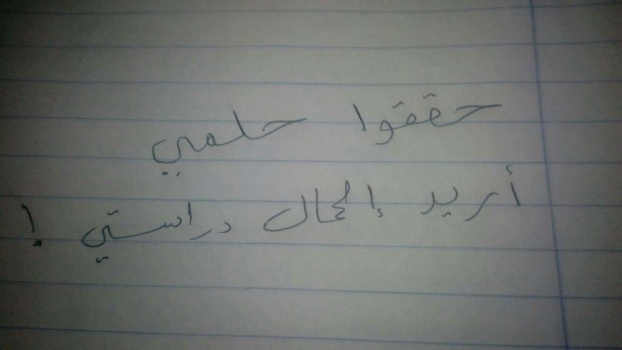 حققوا حلمي
أريد إكمال دراستي !